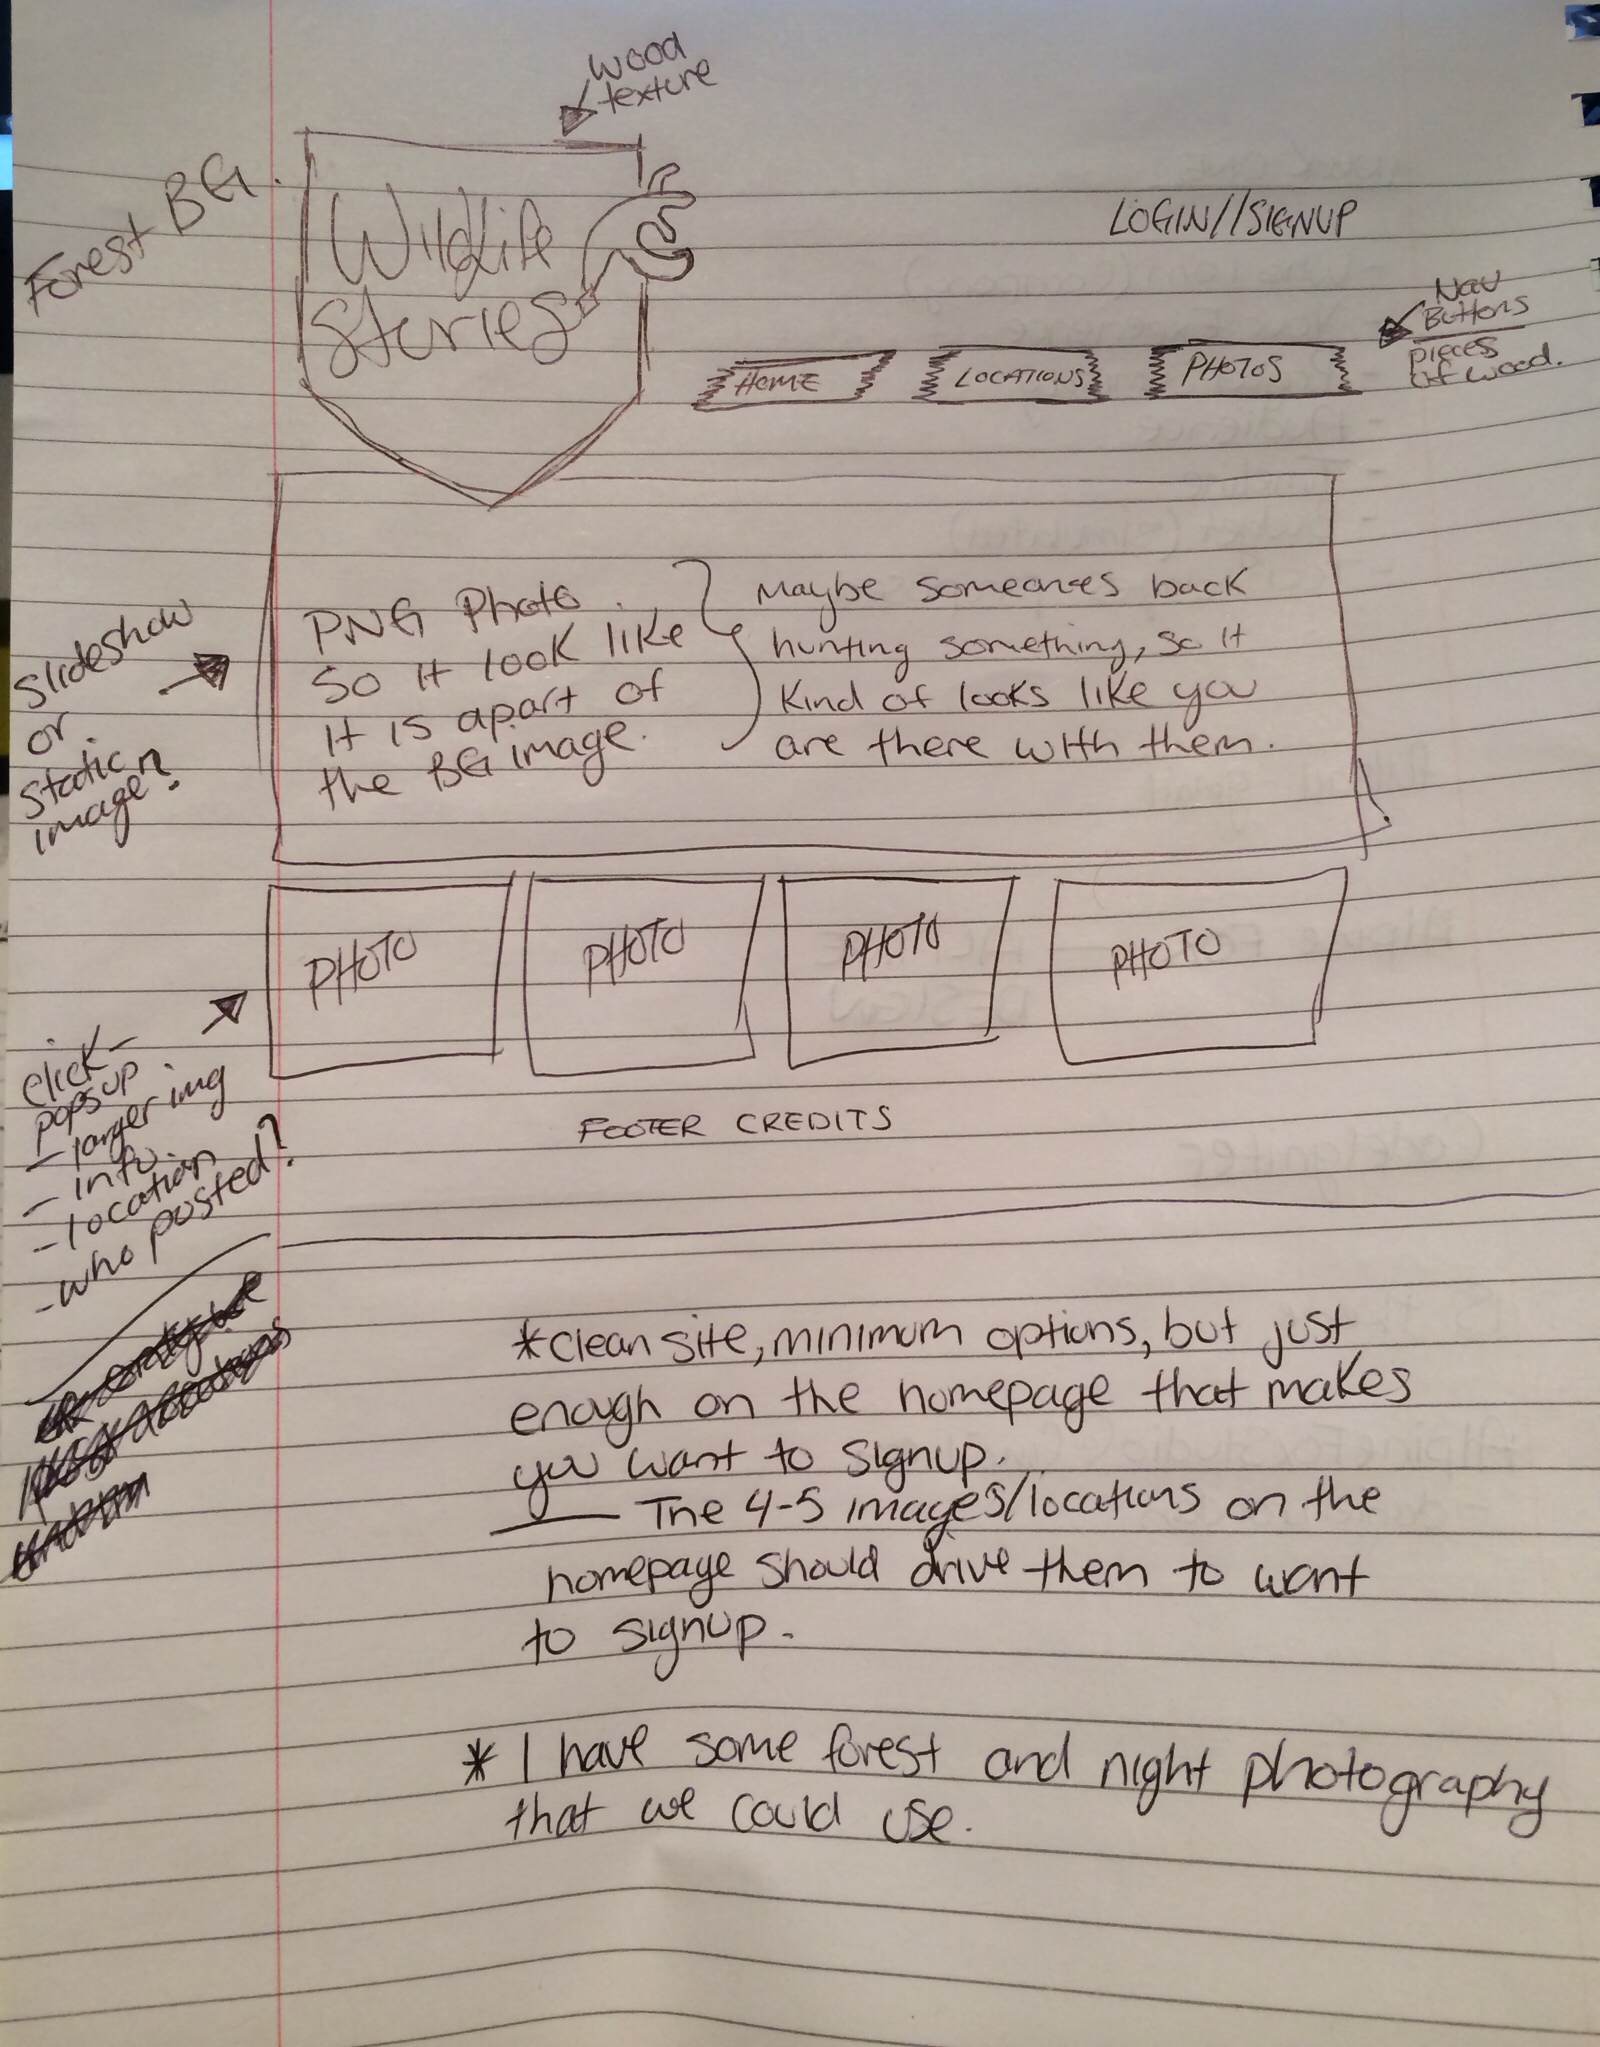 wood
texture
Forest BG.
Wildlife
Stories
LOGIN//SIGNUP
Nav
Buttons
pieces
of wood.
HOME
LOCATIONS
PHOTOS
Slideshow
or
static
image?
PNG Photo
So it look like
it is apart of
the BG image.
Maybe someones back
hunting something, so it
kind of looks like you
are there with them.
PHOTO
PHOTO
PHOTO
PHOTO
click-
popsup
- larger img
- info.
- location
- who posted?
FOOTER CREDITS
*clean site, minimum options, but just
enough on the homepage that makes
you want to signup.
— The 4-5 images/locations on the
homepage should drive them to want
to signup.
* I have some forest and night photography
that we could use.